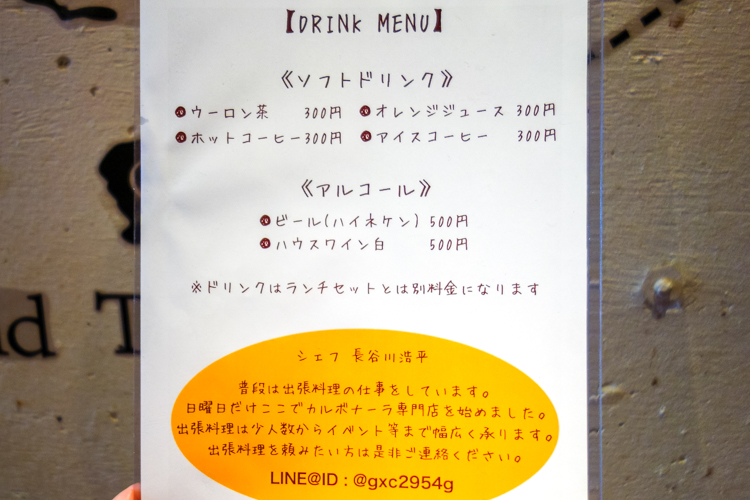 【DRINK MENU】
《ソフトドリンク》
ウーロン茶 300円 オレンジジュース 300円
ホットコーヒー 300円 アイスコーヒー 300円
《アルコール》
ビール(ハイネケン) 500円
ハウスワイン白 500円
※ドリンクはランチセットとは別料金になります
シェフ 長谷川浩平
普段は出張料理の仕事をしています。
日曜日だけここでカルボナーラ専門店を始めました。
出張料理は少人数からイベント等まで幅広く承ります。
出張料理を頼みたい方は是非ご連絡ください。
LINE@ID : @gxc2954g